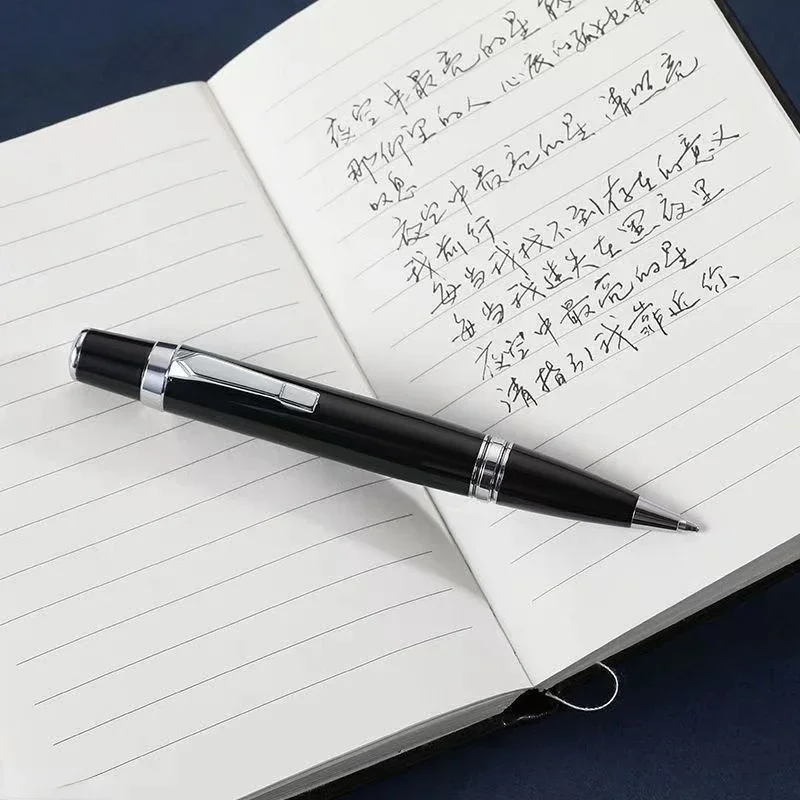 夜空中最亮的星 能
那仰望的人 心底的孤独和
叹息
夜空中最亮的星 请照亮
我前行
每当我找不到存在的意义
每当我迷失在黑夜里
夜空中最亮的星
请指引我靠近你